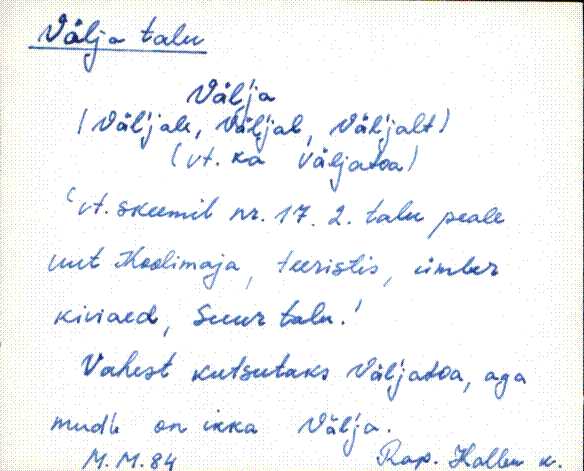 Välja talu
Väl'ja
(Väl'jale, Väl'jal, Väl'jalt)
(vt. ka Väljatoa)
(vt. skeemil nr. 17. 2. talu peale
uut Koolimaja, teeristis, ümber
kiviaed, Suur talu.)
Vahest kutsutaks Väl'jatoa, aga
mudu on ikka Väl'ja.
M. M. 84 Rap. Hallen k.